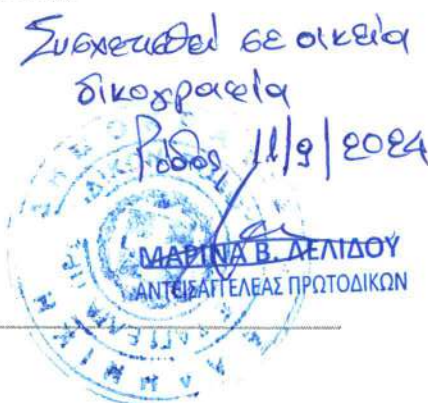 Συσχετισθεί σε οικεία
δικογραφία
Ρόδος 11/9/2024
ΜΑΡΙΝΑ Β. ΔΕΛΙΔΟΥ
ΑΝΤΕΙΣΑΓΓΕΛΕΑΣ ΠΡΩΤΟΔΙΚΩΝ